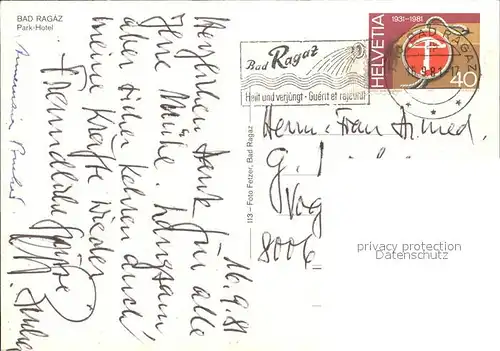 BAD RAGAZ
Park-Hotel
16.9.81
Herzlichen Dank für alle
Ihre Mühe. Langsam
aber sicher kehren auch
meine Kräfte wieder
Freundliche Grüsse
113 – Foto Fetzer, Bad Ragaz
Bad Ragaz
Heilt und verjüngt - Guérit et rajeunit
BAD RAGAZ
HELVETIA
1931-1981
40
Herrn + Frau Dr. med.
G.
8006
privacy protection
Datenschutz